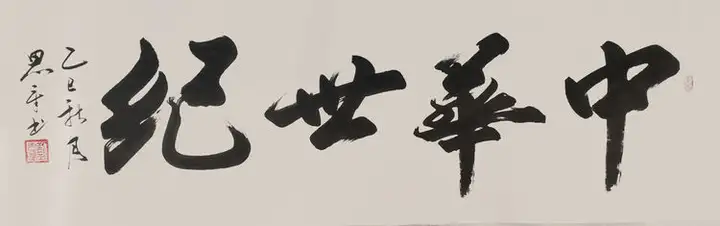 中華世紀
乙巳秋月
思平书